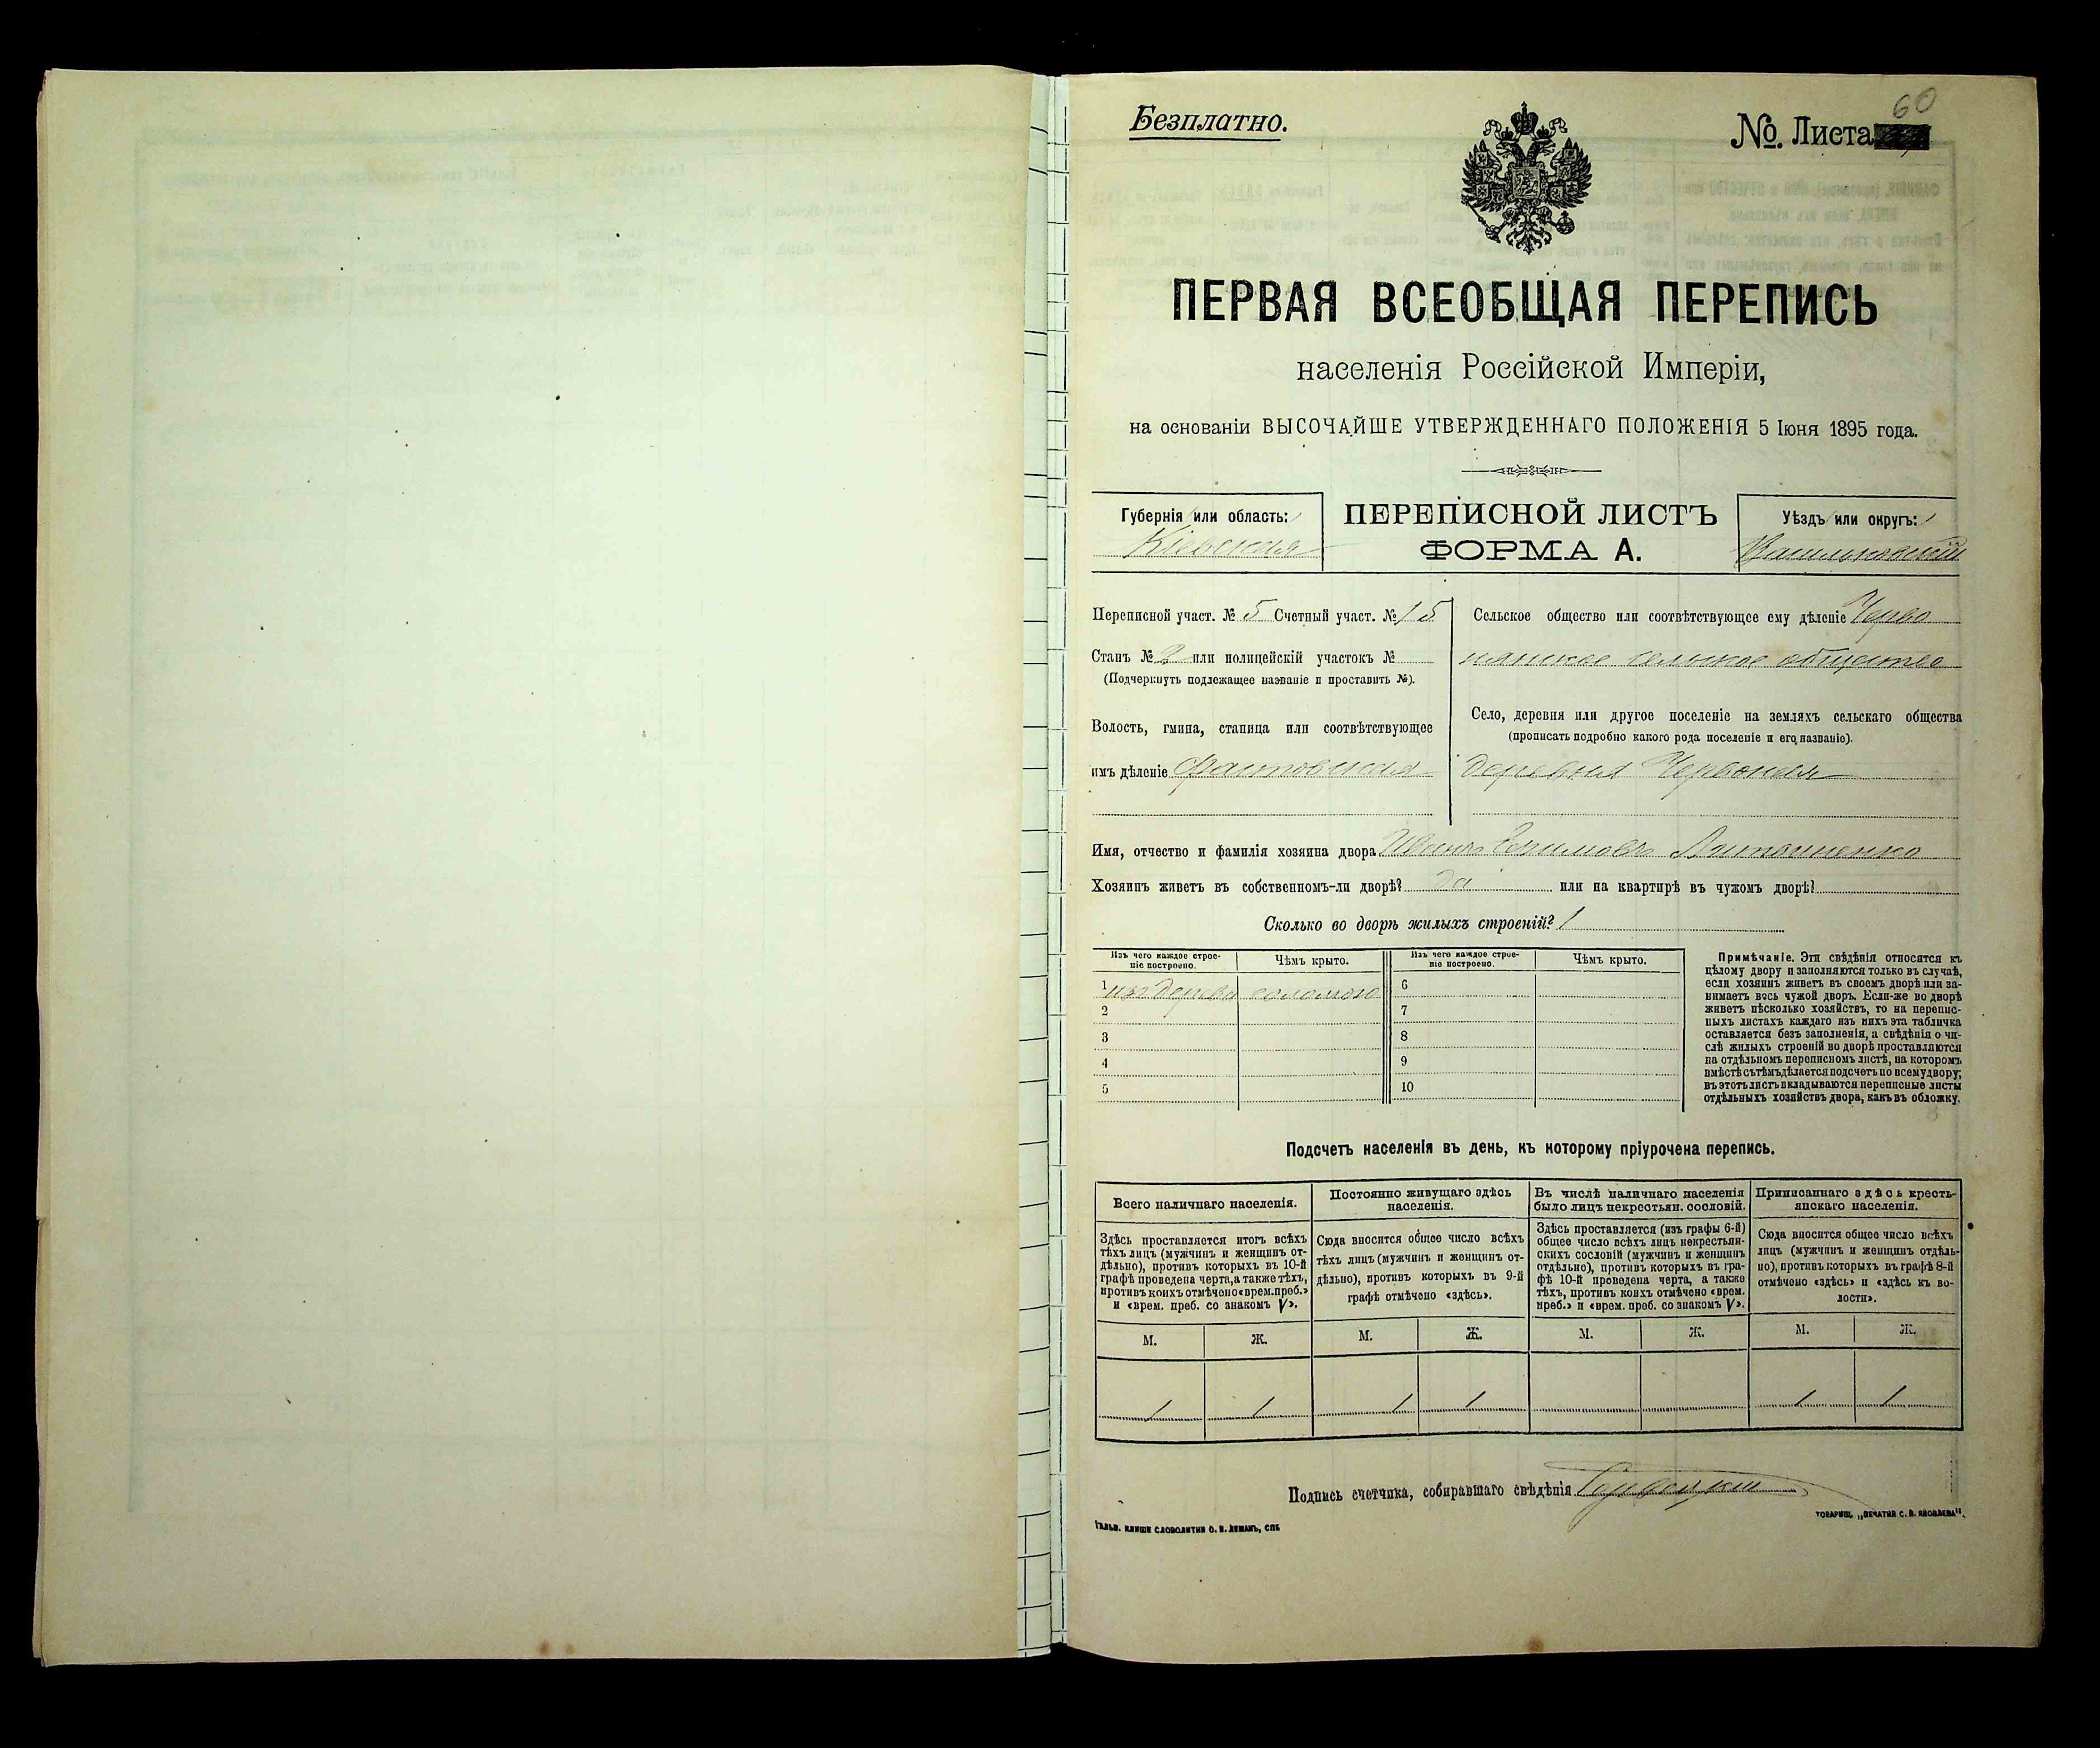 Безплатно.
60
№. Листа
ПЕРВАЯ ВСЕОБЩАЯ ПЕРЕПИСЬ
населенія Россійской Имперіи,
на основаніи ВЫСОЧАЙШЕ УТВЕРЖДЕННАГО ПОЛОЖЕНІЯ 5 Іюня 1895 года.
Губернія или область:
Кіевская
ПЕРЕПИСНОЙ ЛИСТЪ
ФОРМА А.
Уѣздъ или округъ:
Васильковскій
Переписной участ. № 5 Счетный участ. № 15
Станъ № 2 или полицейскій участокъ №
(Подчеркнуть подлежащее названіе и проставить №).
Волость, гмина, станица или соотвѣтствующее
имъ дѣленіе Фастовская
Сельское общество или соотвѣтствующее ему дѣленіе Черво
нянское сельское общество
Село, деревня или другое поселеніе на земляхъ сельскаго общества
(прописать подробно какого рода поселеніе и его названіе).
деревня Червоная
Имя, отчество и фамилія хозяина двора Иванъ
Хозяинъ живетъ въ собственномъ-ли дворѣ? да или на квартирѣ въ чужомъ дворѣ?
Сколько во дворѣ жилыхъ строеній? 1
Изъ чего каждое строе-
ніе построено.
Чѣмъ крыто.
Изъ чего каждое строе-
ніе построено.
Чѣмъ крыто.
1 изъ дерева соломою 6
2 7
3 8
4 9
5 10
Примѣчаніе. Эти свѣдѣнія относятся къ
цѣлому двору и заполняются только въ случаѣ,
если хозяинъ живетъ въ своемъ дворѣ или за-
нимаетъ весь чужой дворъ. Если-же во дворѣ
живетъ нѣсколько хозяйствъ, то на перепис-
ныхъ листахъ каждаго изъ нихъ эта табличка
оставляется безъ заполненія, а свѣдѣнія о чи-
слѣ жилыхъ строеній во дворѣ проставляются
на отдѣльномъ переписномъ листѣ, на которомъ
вмѣстѣ съ тѣмъ дѣлается подсчетъ по всему двору;
въ этотъ листъ вкладываются переписные листы
отдѣльныхъ хозяйствъ двора, какъ въ обложку.
Подсчетъ населенія въ день, къ которому пріурочена перепись.
Всего наличнаго населенія.
Здѣсь проставляется итогъ всѣхъ
тѣхъ лицъ (мужчинъ и женщинъ от-
дѣльно), противъ которыхъ въ 10-й
графѣ проведена черта, а также тѣхъ,
противъ коихъ отмѣчено «врем. преб.»
и «врем. преб. со знакомъ V».
Постоянно живущаго здѣсь
населенія.
Сюда вносится общее число всѣхъ
тѣхъ лицъ (мужчинъ и женщинъ от-
дѣльно), противъ которыхъ въ 9-й
графѣ отмѣчено «здѣсь».
Въ числѣ наличнаго населенія
было лицъ некрестьян. сословій.
Здѣсь проставляется (изъ графы 6-й)
общее число всѣхъ лицъ некрестьян-
скихъ сословій (мужчинъ и женщинъ
отдѣльно), противъ которыхъ въ гра-
фѣ 10-й проведена черта, а также
тѣхъ, противъ коихъ отмѣчено «врем.
преб.» и «врем. преб. со знакомъ V».
Приписаннаго здѣсь кресть-
янскаго населенія.
Сюда вносится общее число всѣхъ
лицъ (мужчинъ и женщинъ отдѣль-
но), противъ которыхъ въ графѣ 8-й
отмѣчено «здѣсь» и «здѣсь къ во-
лости».
М. Ж. М. Ж. М. Ж. М. Ж.
1 1 1 1 1 1
Подпись счетчика, собиравшаго свѣдѣнія
ГАЛЬВ. КЛИШЕ СЛОВОЛИТНИ О. И. ЛЕМАНЪ, СПБ
ТОВАРИЩ. „ПЕЧАТНЯ С. П. ЯКОВЛЕВА“.